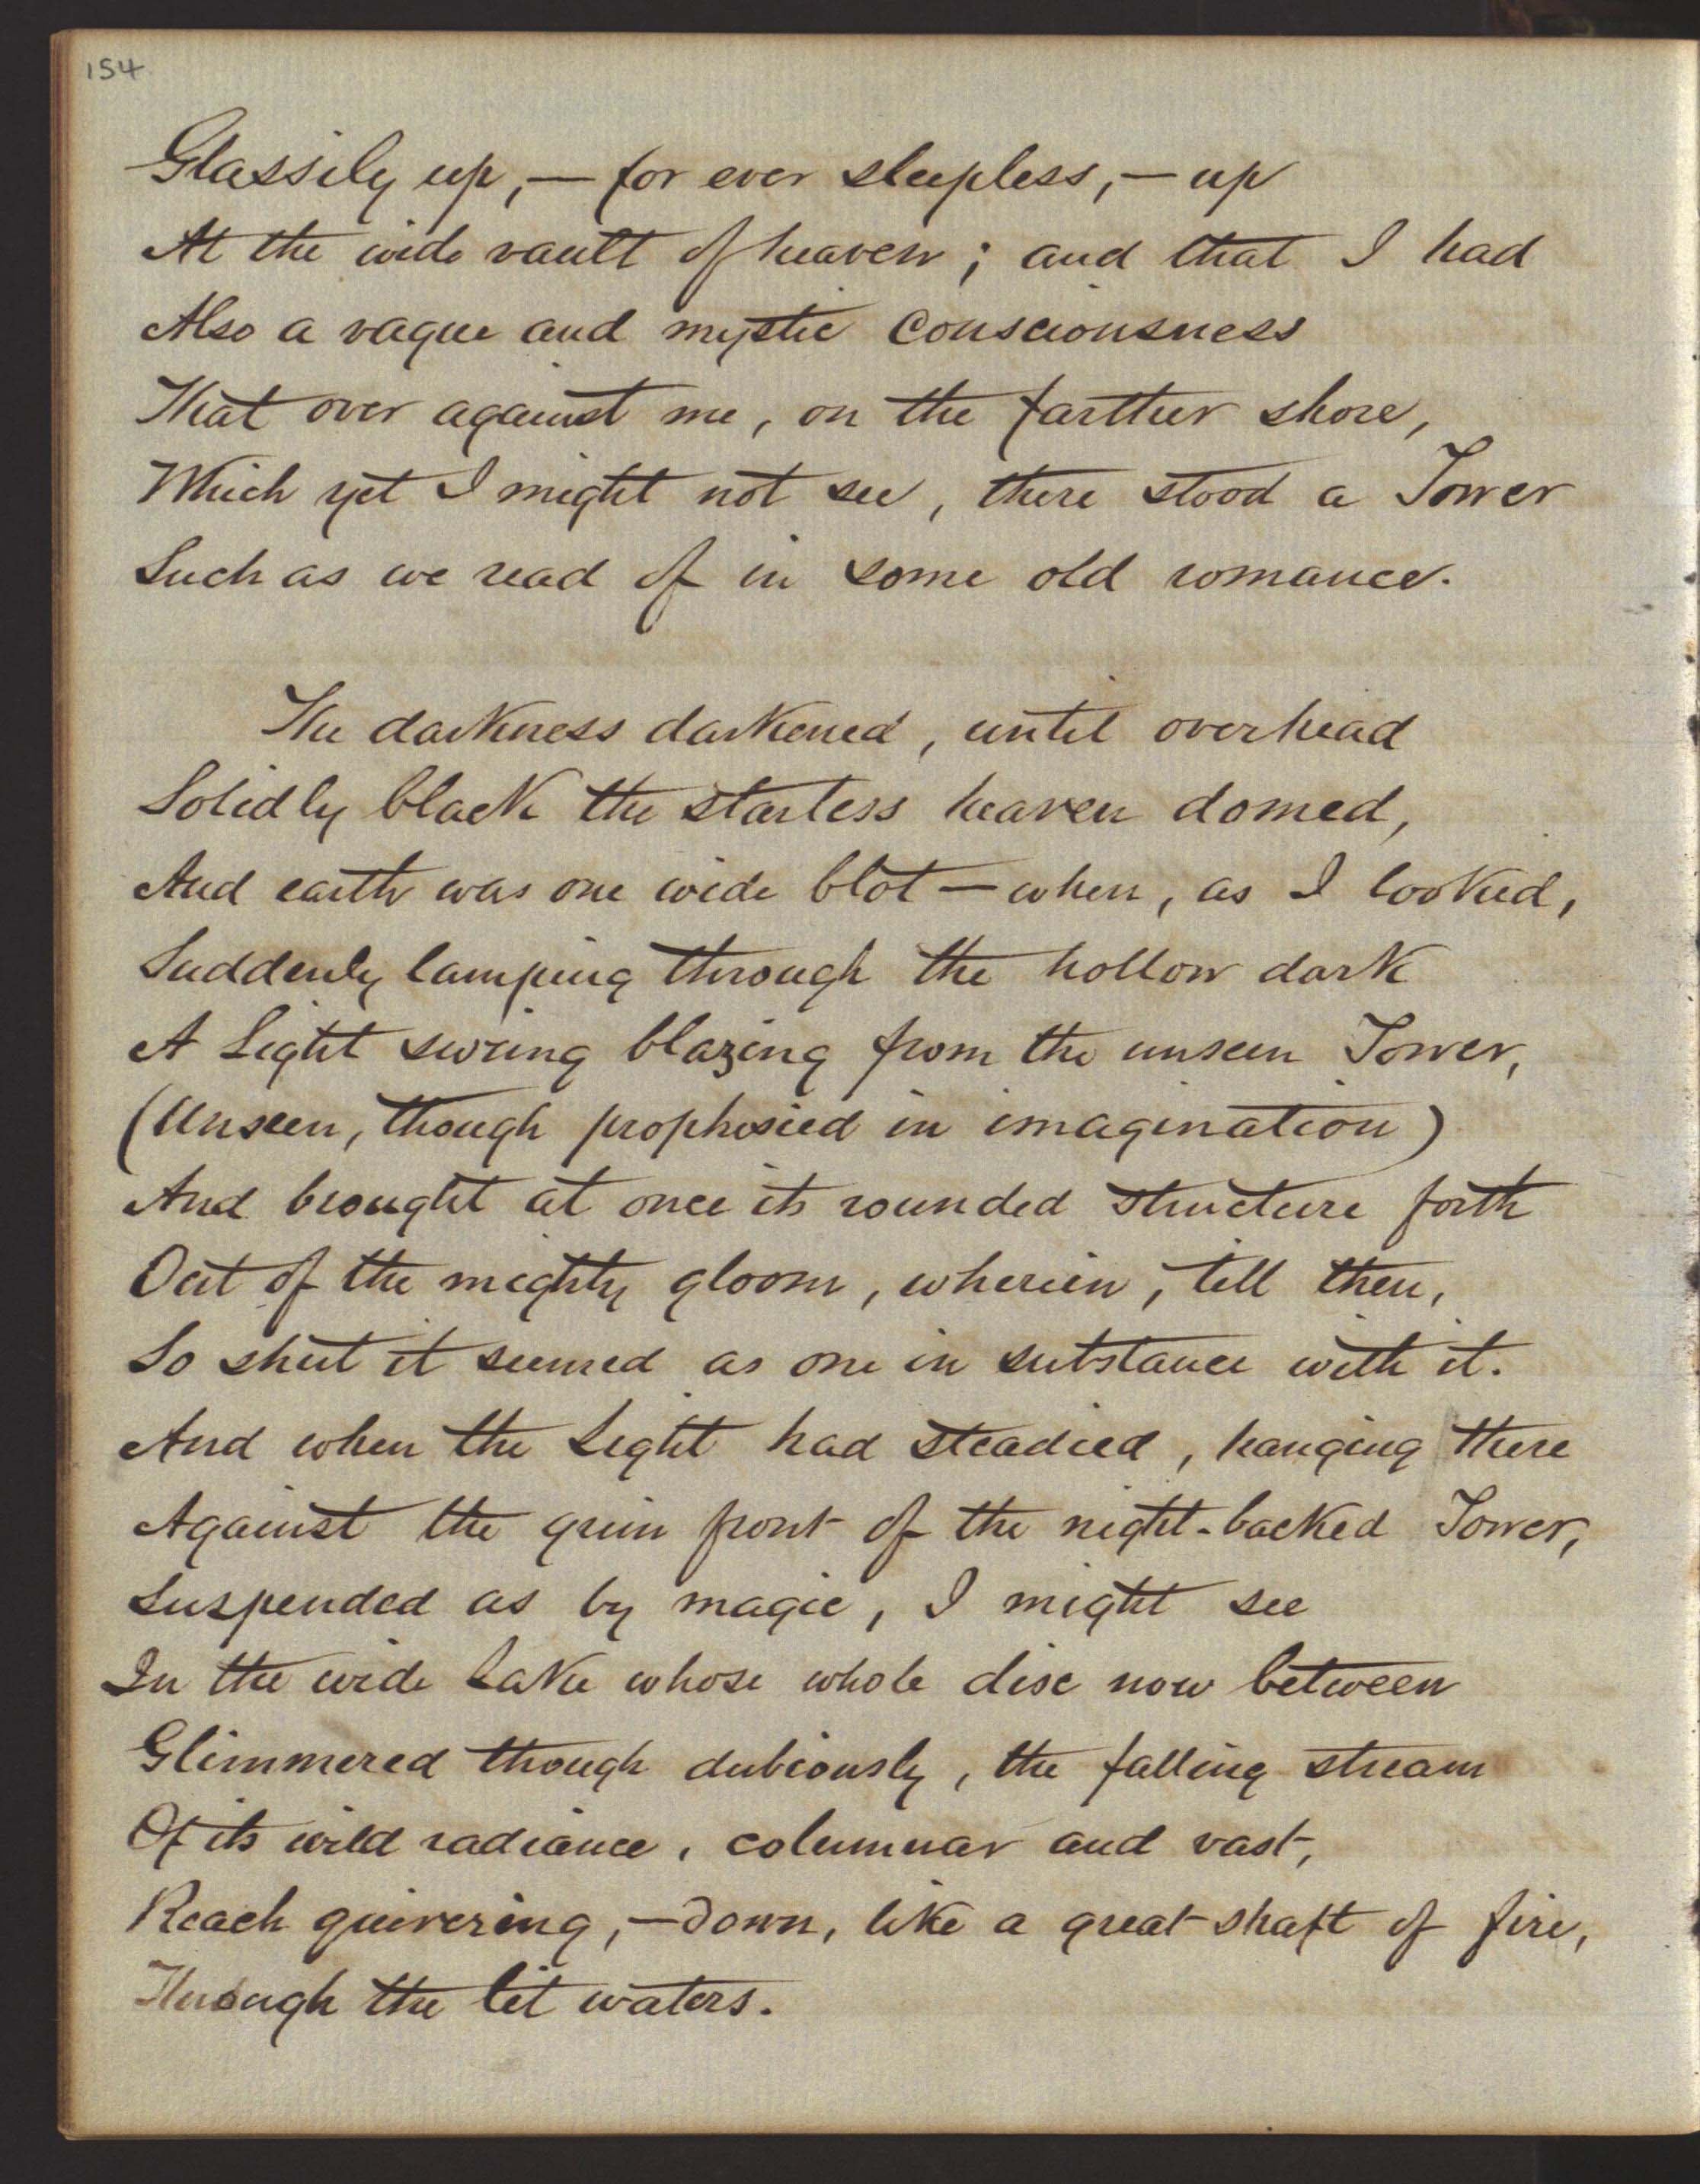 154
Glassily up, — for ever sleepless, — up
At the wide vault of heaven; and that I had
Also a vague and mystic consciousness
That over against me, on the farther shore,
Which yet I might not see, there stood a Tower
Such as we read of in some old romance.
The darkness darkened, until overhead
Solidly black the starless heaven domed,
And earth was one wide blot — when, as I looked,
Suddenly lamping through the hollow dark
A Light swung blazing from the unseen Tower,
(Unseen, though prophesied in imagination)
And brought at once its rounded structure forth
Out of the mighty gloom, wherein, till then,
So shut it seemed as one in substance with it.
And when the Light had steadied, hanging there
Against the grim front of the night-backed Tower,
Suspended as by magic, I might see
In the wide Lake whose whole disc now between
Glimmered though dubiously, the falling stream
Of its wild radiance, columnar and vast,
Reach quivering, — down, like a great shaft of fire,
Through the lit waters.